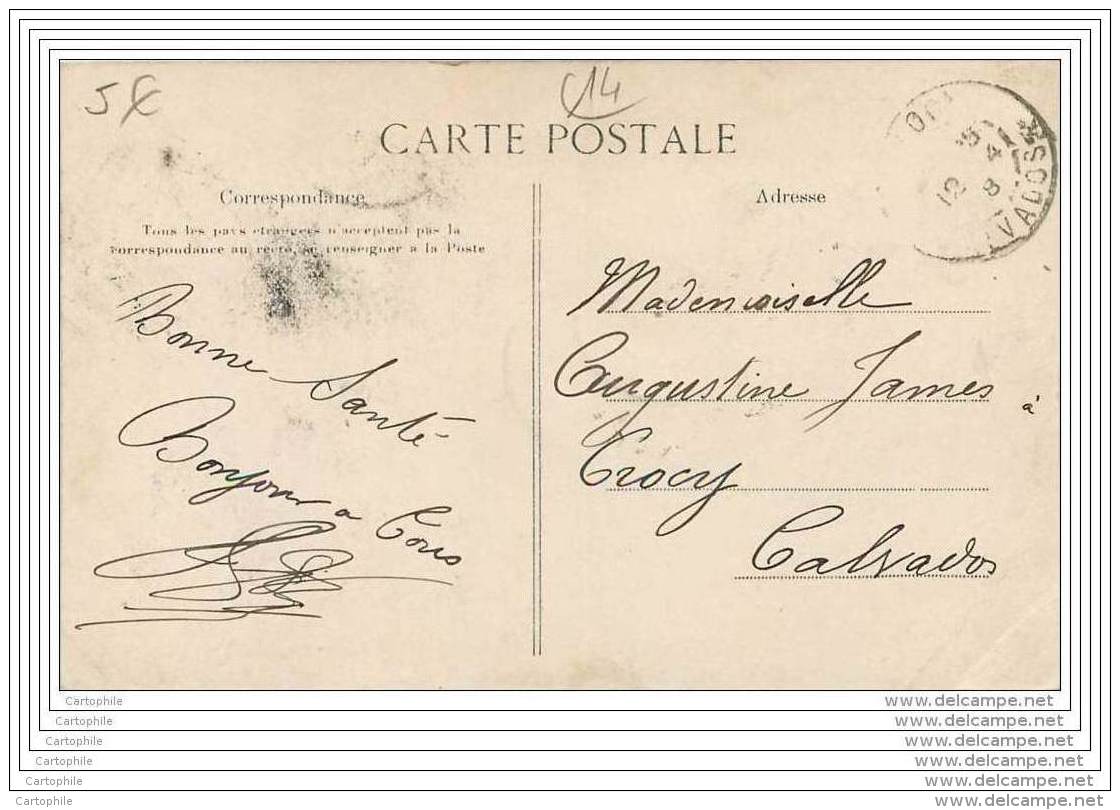 14
CARTE POSTALE
Correspondance
Tous les pays etrangers n'acceptent pas la
correspondance au recto, se renseigner a la Poste
Bonne Santé
Bonjour a Tous
Adresse
Mademoiselle
Augustine James
à
Crocy
Calvados
12
8
4
VADOS
Cartophile
www.delcampe.net
Cartophile
www.delcampe.net
Cartophile
www.delcampe.net
Cartophile
www.delcampe.net
Cartophile
www.delcampe.net
Cartophile
www.delcampe.net